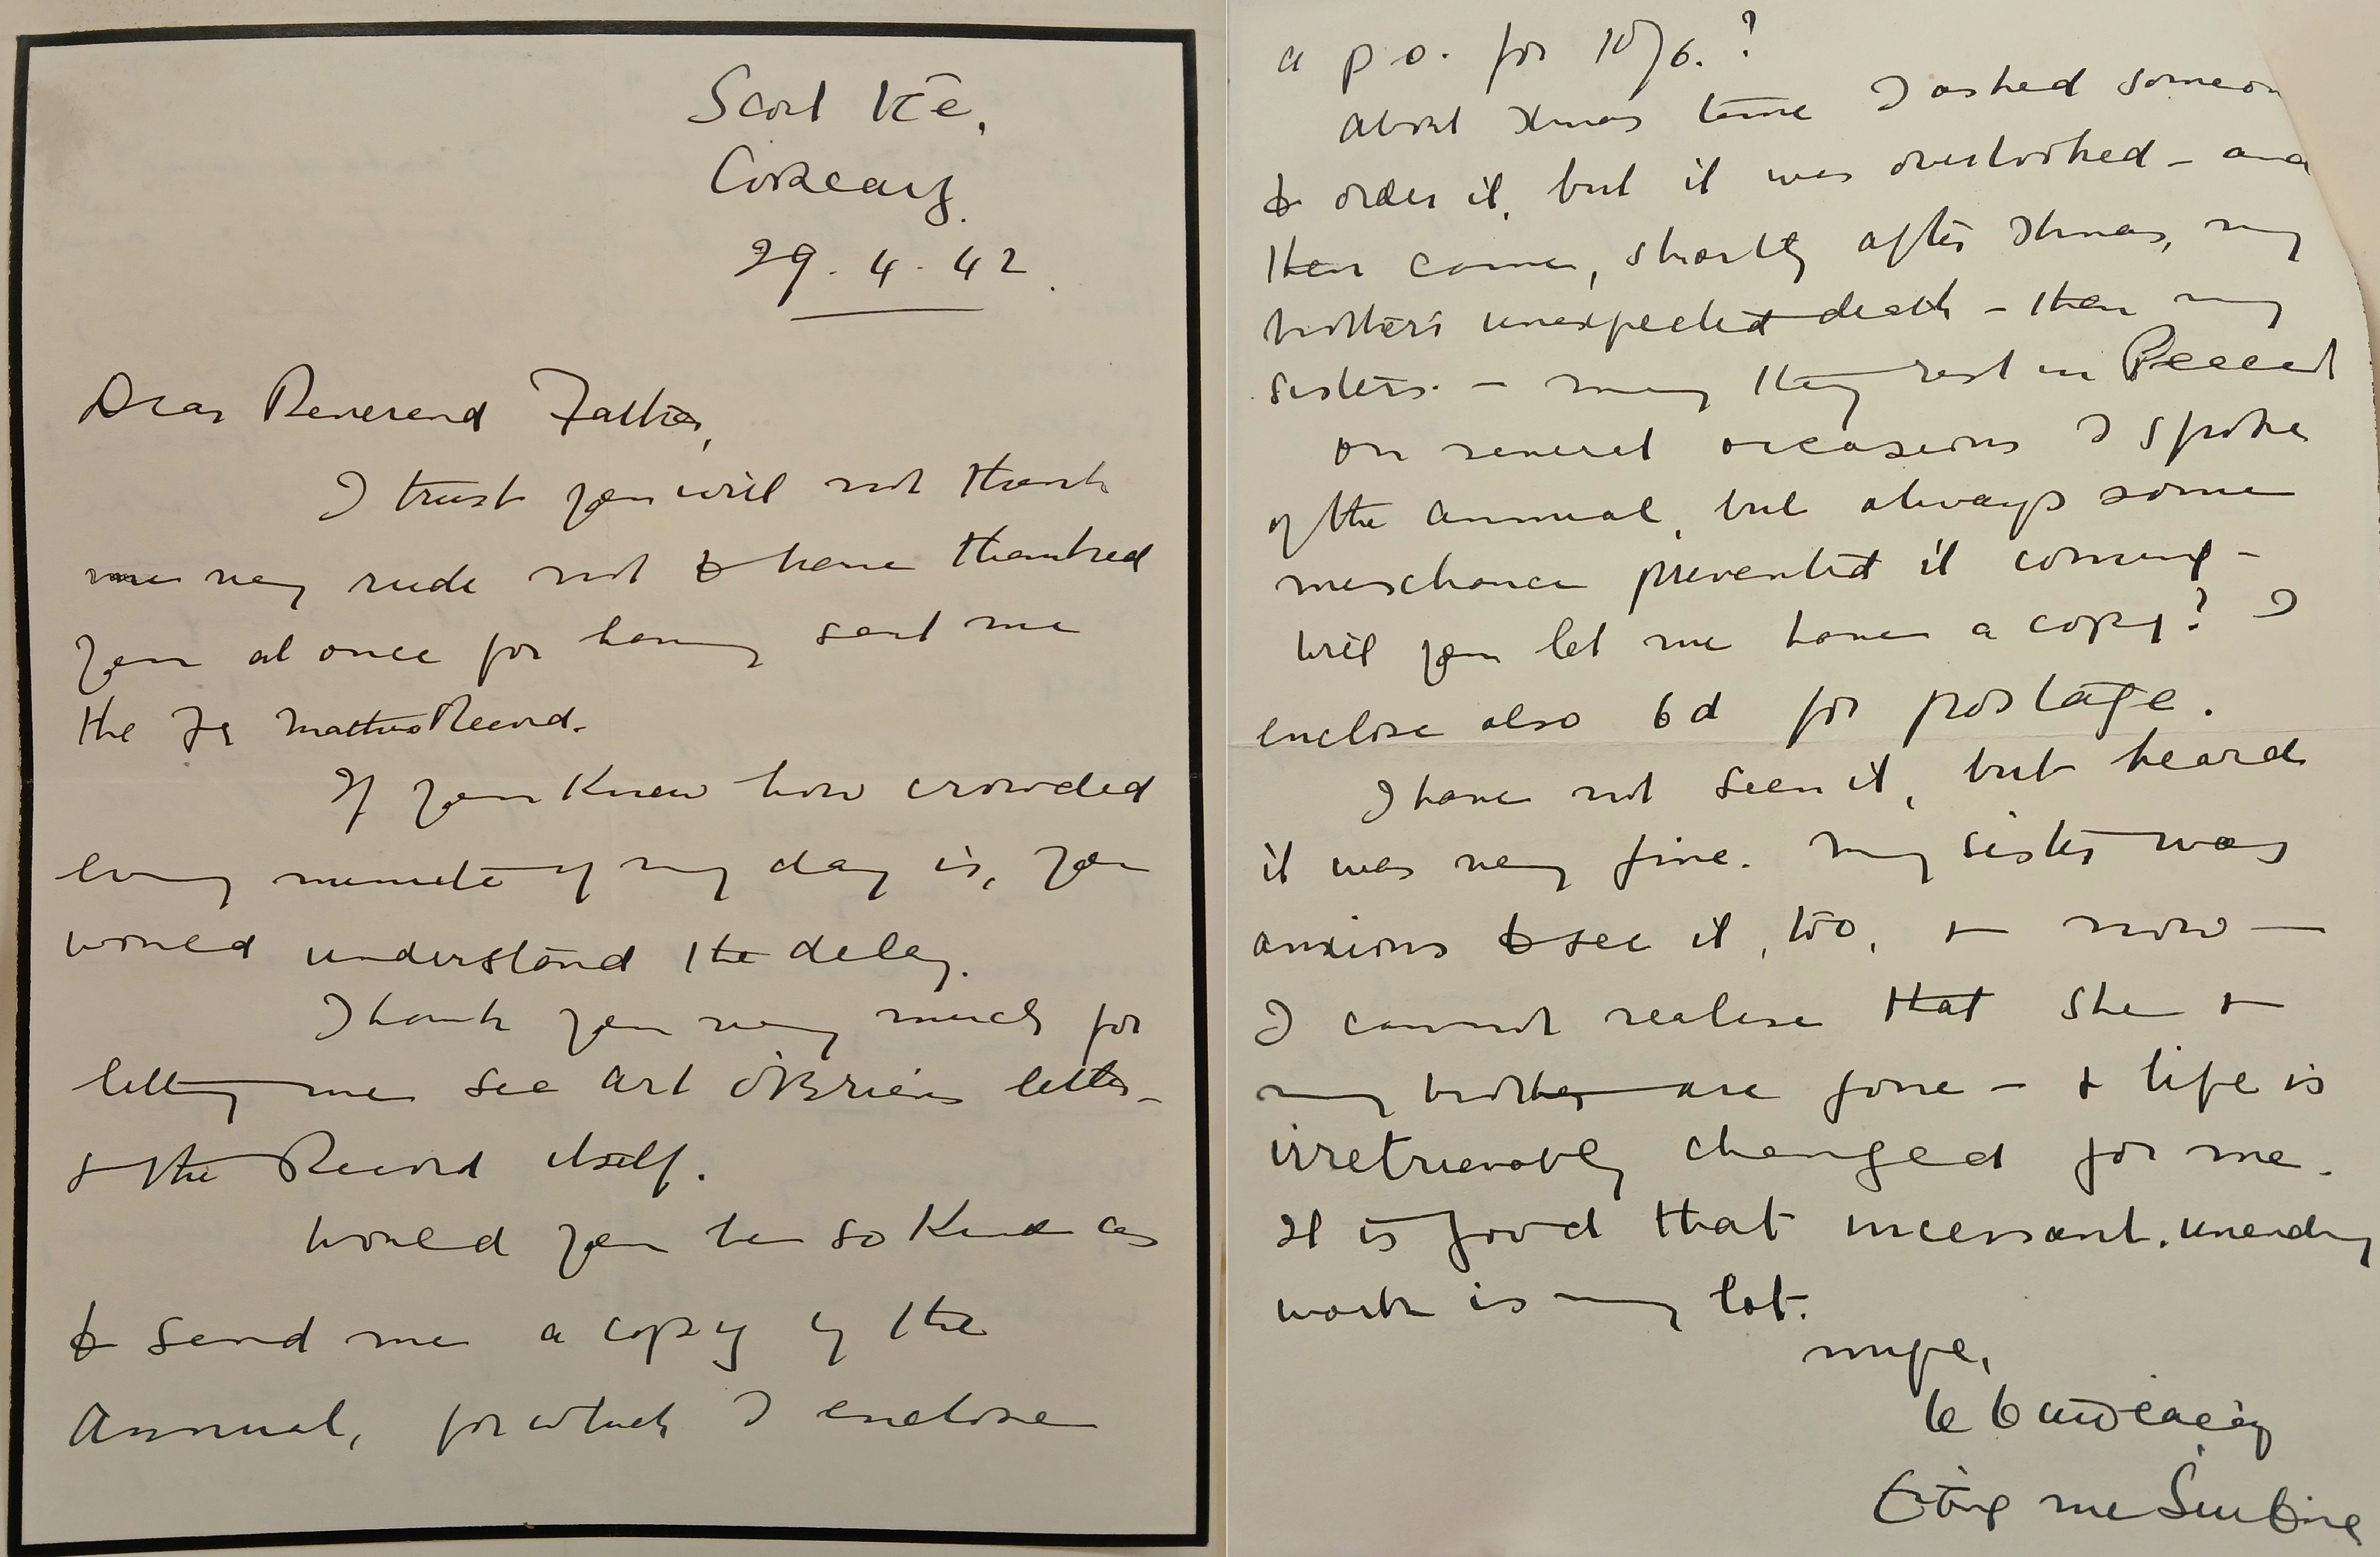 Scoil Íte,
Corcaiġ.
29.4.42.
Dear Reverend Father,
I trust you will not think
me very rude not to have thanked
you at once for having sent me
the Fr Mathew Record.
If you knew how crowded
every minute of my day is, you
would understand the delay.
Thank you very much for
letting me see Art O'Brien's letter -
& the Record itself.
Would you be so kind as
to send me a copy of the
Annual, for which I enclose
a p.o. for 10/6.?
About Xmas time I asked someon
to order it, but it was overlooked - and
then came, shortly after Xmas, my
brother's unexpected death - then my
sister's. - may they rest in Peace!
On several occasions I spoke
of the Annual, but always some
mischance prevented it coming -
Will you let me have a copy? I
enclose also 6d for postage.
I have not seen it, but heard
it was very fine. My sister was
anxious to see it, too, & now -
I cannot realise that she &
my brother are gone - & life is
irretrievably changed for me.
It is good that incessant, unending
work is my lot.
Mise,
le
Eiṫne nic Suiḃne